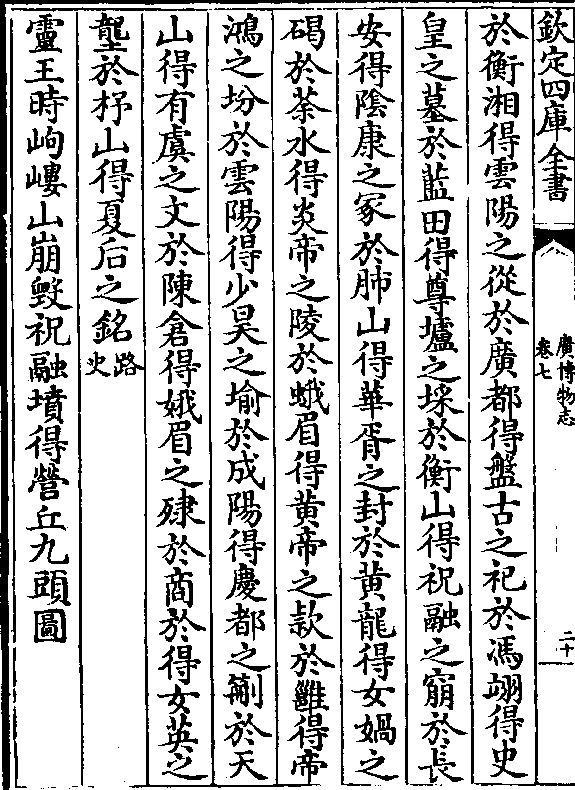 欽定四庫全書
廣博物志
卷七
二十
於衡湘得雲陽之從於廣都得盤古之祀於馮翊得史
皇之墓於藍田得尊壚之埰於衡山得祝融之窮於長
安得陰康之冢於肺山得華胥之封於黄龍得女媧之
碣於荼水得炎帝之陵於蛾眉得黄帝之款於雝得帝
鴻之坋於雲陽得少昊之堬於成陽得慶都之𠞰於天
山得有虞之文於陳倉得娥眉之肂於商於得女英之
壟於杼山得夏后之銘路史
靈王時岣嶁山崩毀祝融墳得營丘九頭圖